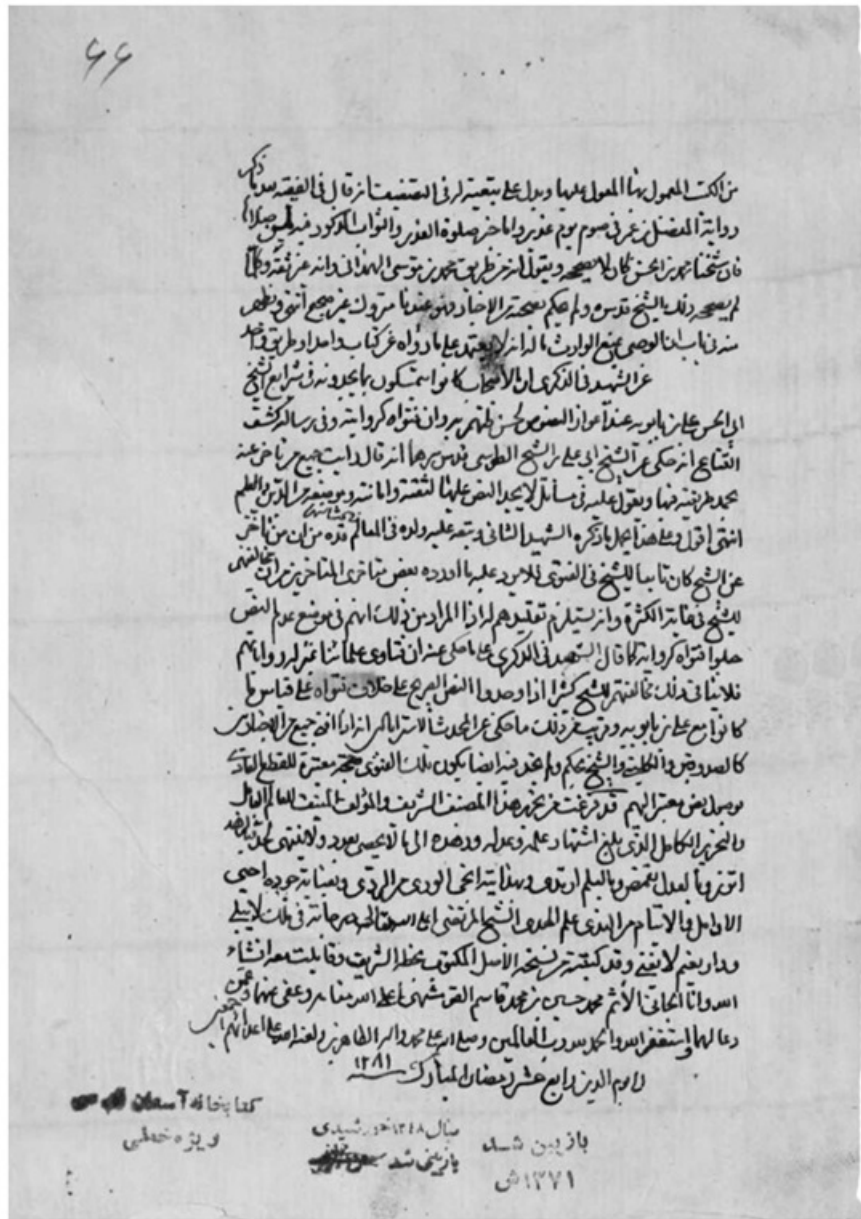 ٤٤
ذكر
من الكتب المعمول بها المعول عليها ويدل على تبعيته له في التصنيفات انه قال في الفقيه بعد ما
رواية المفضل بن عمر في صوم يوم غدير واما خبر صلوة الغدير والثواب المذكور فيه لمن صلاها
فان شيخنا محمد بن الحسن كان لا يصححه ويقول انه من طريق محمد بن موسى الهمداني وانه غير ثقة وكلما
لم يصححه ذلك الشيخ قدسره ولم يحكم بصحته من الاخبار فهو عندنا متروك غير صحيح انتهى ويظهر
منه في باب ان الوصي يمنع الوارث ماله انه لا يعتمد على ما رواه غير كتاب واحد او طريق واحد
عن الشهيد في الذكرى ان الاصحاب كانوا يتمسكون بما يجدونه في شرايع الشيخ
ابي الحسن علي بن بابويه عند اعواز النصوص لحسن ظنهم به وان فتواه كروايته وفي رسالة كشف
القناع انه حكى عن الشيخ ابي علي بن الشيخ الطوسي قدس سرهما انه قال رايت جميع من تاخر عنه
يحمد طريقته فيها ويعول عليه في مسائل لا يجد النص عليها لثقته وامانته وموضعه من الدين والعلم
انتهى اقول وعلى هذا يحمل ما ذكره الشهيد الثاني وتبعه عليه ولده في المعالم من ان من تاخر
عن الشيخ كان تابعا للشيخ في الفتوى فلا يرد عليه ما اورده بعض متاخري المتاخرين من ان مخالفتهم
للشيخ في غاية الكثرة وانه يستلزم تقليدهم له اذ المراد من ذلك انهم في موضع عدم النص
جعلوا فتواه كروايته كما قال الشهيد في الذكرى على ما حكي عنه ان فتاوى علمائنا
فلا ينافي ذلك مخالفتهم للشيخ كثيرا اذا وجدوا النص الصريح على خلاف فتواه على قياس ما
كانوا مع علي بن بابويه ذلك ما حكي عن المحدث الاسترابادي انه اذا افتى جميع من الاخباريين
كالصدوقين والكليني والشيخ بحكم ولم فيه ايضا يكون تلك الفتوى حجة معتبرة للقطع العادي
بوصول نص معتبر اليهم قد فرغت من تحرير هذا المصنف الشريف والمؤلف المنيف للعالم العامل
والنحرير الكامل الذي بلغ اشتهار علمه وعدله وزهده الى ما لا يحصى بعدد ولا ينتهى
بالعدل تقمص وبالعلم ارتدى وبهدايته انجى الورى من الردى وبفيضانه جوده احيى
الارامل والايتام من الندى علم الهدى الشيخ المرتضى في ملك لا يبلى
ودار نعيم لا يفنى وقد كتبته من نسخة الاصل المكتوب بخطه الشريف وقابلت معه انشاء
الله وانا الجاني الأثم محمد حسين بن محمد قاسم القمشهي اعلى الله مقامه وعفى عنهما وعمن
دعا لهما واستغفر الله والحمد لله رب العالمين وصلى الله على محمد واله الطاهرين ولعنة الله على اعدائهم اجمعين
الى يوم الدين رابع عشر رمضان المبارك ١٢٨١
كتابخانه آستان قدس
ویژه خطی
سال ۱۳۴۸ خورشیدی
بازبینی شد
بازبین شد
۱۳۷۱ش